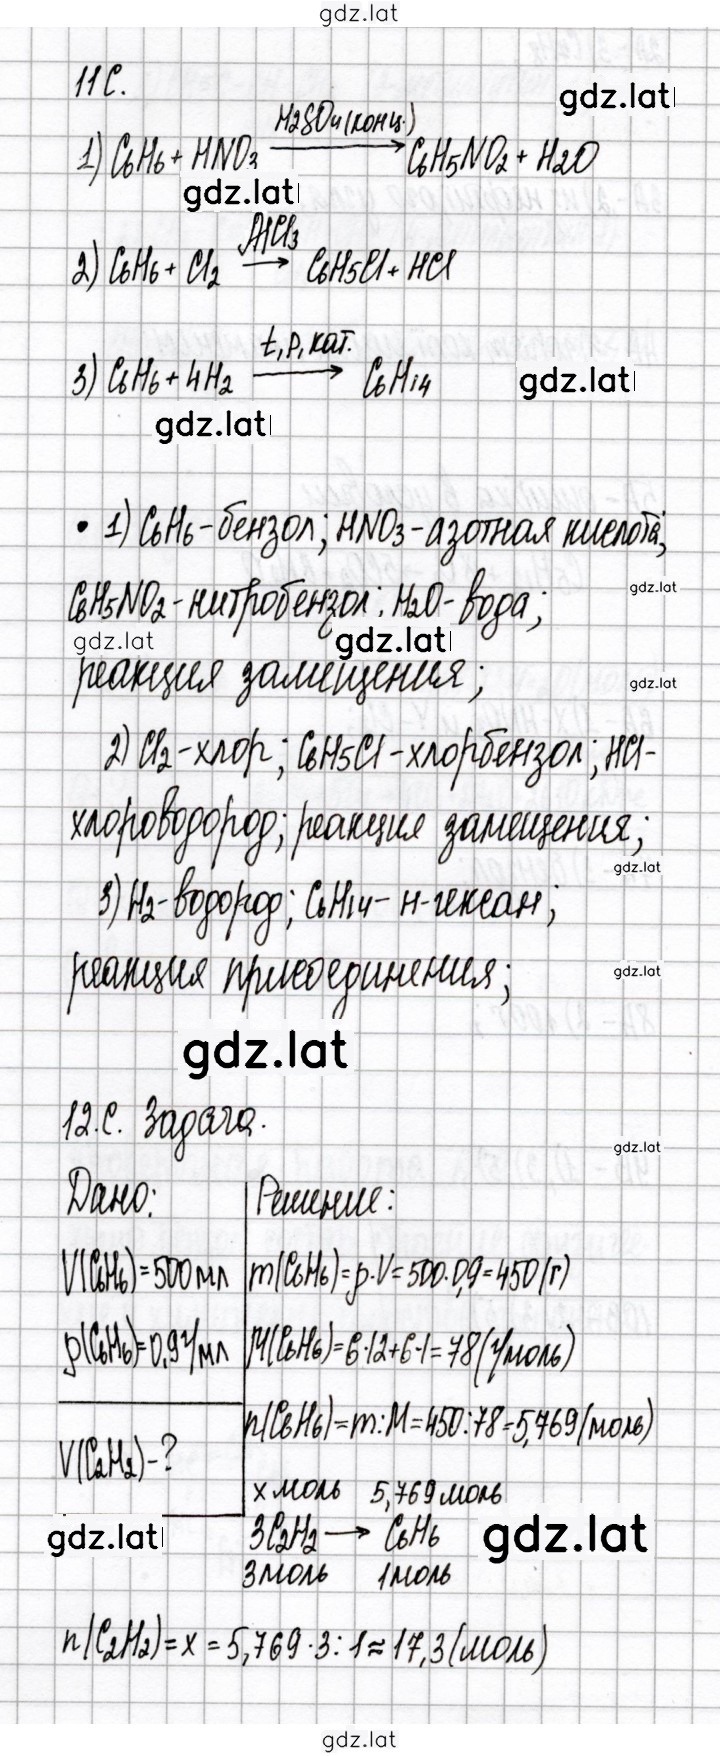 gdz.lat
11С.
gdz.lat
1) C6H6 + HNO3 H2SO4(конц.) → C6H5NO2 + H2O
gdz.lat
2) C6H6 + Cl2 AlCl3 → C6H5Cl + HCl
3) C6H6 + 4H2 t, p, кат. → C6H14
gdz.lat
gdz.lat
• 1) C6H6 - бензол; HNO3 - азотная кислота;
C6H5NO2 - нитробензол; H2O - вода;
gdz.lat
gdz.lat
gdz.lat
реакция замещения;
gdz.lat
2) Cl2 - хлор; C6H5Cl - хлорбензол; HCl -
хлороводород; реакция замещения;
gdz.lat
3) H2 - водород; C6H14 - н-гексан;
реакция присоединения;
gdz.lat
gdz.lat
12.С. Задача.
gdz.lat
Дано:
V(C6H6) = 500 мл
ρ(C6H6) = 0,9 г/мл
V(C2H2) - ?
Решение:
m(C6H6) = ρ·V = 500·0,9 = 450 (г)
M(C6H6) = 6·12 + 6·1 = 78 (г/моль)
n(C6H6) = m : M = 450 : 78 = 5,769 (моль)
x моль 5,769 моль
3C2H2 → C6H6
3 моль 1 моль
gdz.lat
gdz.lat
n(C2H2) = x = 5,769·3 : 1 ≈ 17,3 (моль)
gdz.lat